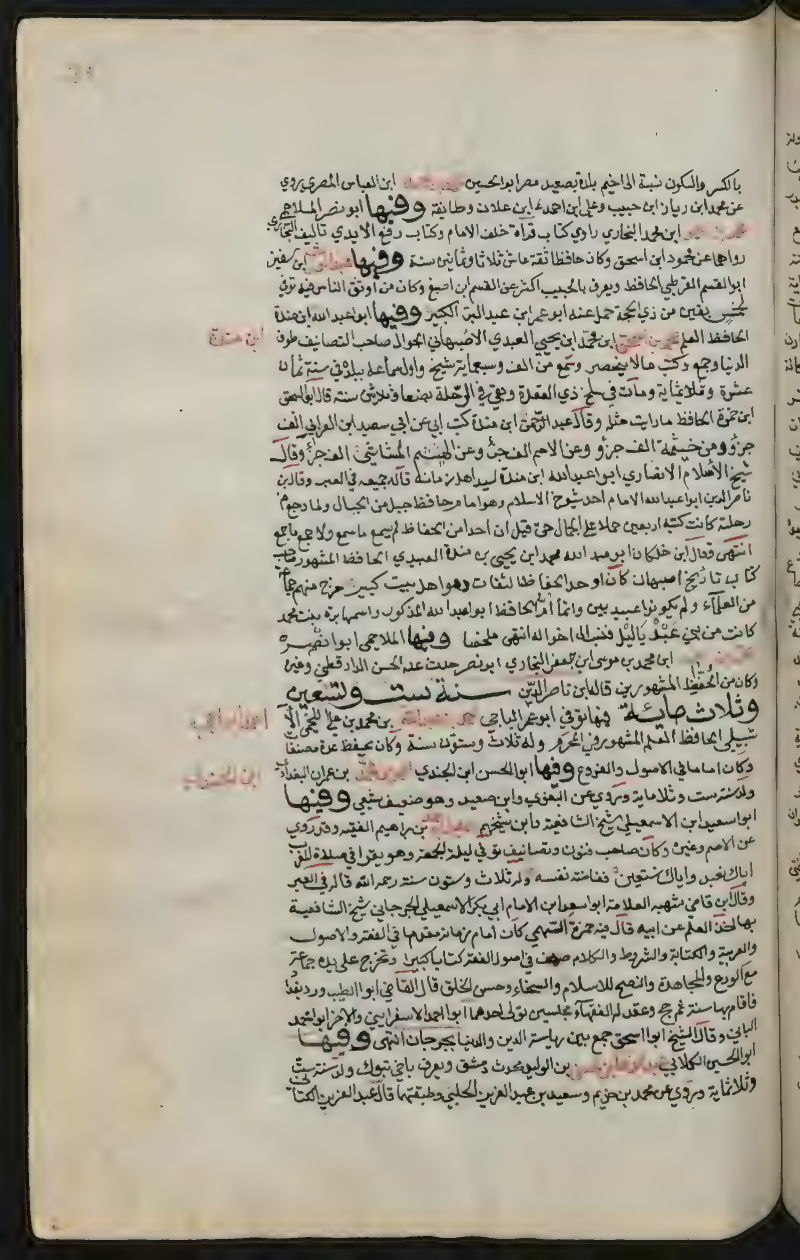 بالكسر والسكون نسبة الى اخيم بلدة بصعيد مصر ابو الحسين ابن العباس المصري روي
عن محمد ابن ريان ابن حبيب وعلي ابن احمد ابن علان وطايفة وفيها ابو نصر الملاحمي
ابن محمد البخاري راوي كتاب قراة خلف الامام وكتاب رفع الايدي تاليف البخاري
رواهما عن محمود ابن اسحق وكان حافظا ثقة عاش ثلاثا وثمانين سنة وفيها عبد الوارث ابن سفين
ابو القسم القرطبي الحافظ ويعرف بالحبيب اكثر عن القسم ابن اصبغ وكان من اوثق الناس فيه توفي
لخمس بقين من ذي الحجة حمل عنه ابو عمر ابن عبد البر الكثير وفيها ابو عبد الله ابن مندة
الحافظ العلم محمد بن اسحق ابن محمد ابن يحيى العبدي الاصبهاني الجوال صاحب التصانيف طوف
ابن مندة
الدنيا وجمع وكتب مالا ينحصر وسمع من الف وسبعماية شيخ واول سماعه ببلده في سنة ثمان
عشرة وثلاثماية ومات في سلخ ذي القعدة وبقي في الرحلة بضعا وثلاثين سنة قال ابو اسحق
ابن حمزة الحافظ ما رايت مثله وقال عبد الرحمن ابن مندة كتب ابي عن ابي سعيد ابن الاعرابي الف
جزؤ وعن خيثمة الف جزؤ وعن الاصم الف جزؤ وعن الهيثم الشاشي الف جزؤ وقال
شيخ الاسلام الانصاري ابو عبد الله ابن مندة سيد اهل زمانه قاله جميعه في العبر وقال ابن
ناصر الدين ابو عبد الله الامام احد شيوخ الاسلام وهو امام حافظ جبل من الجبال ولما رجع من
رحلته كانت كتبه اربعين حملا على الجمال حتى قيل ان احدا من الحفاظ لم يسمع ما سمع ولا جمع ما جمع
انتهى وقال ابن خلكان ابو عبد الله محمد ابن يحيى بن مندة العبدي الحافظ المشهور صاحب
كتاب تاريخ اصبهان كان احد الحفاظ الثقات وهو اهل بيت كبير خرج منهم جماعة
من العلماء ولم يكونوا عبيديين وانما ام الحافظ ابو عبد الله المذكور واسمها برة بنت محمد
كانت من بني عبد ياليل فنسب الى اخواله انتهى ملخصا وفيها الملاحمي ابو نصر
ابن محمد بن موسى ابن جعفر البخاري ابو نصر حدث عنه الحسن الدارقطني وغيره
وكان من الحفاظ المشهورين قاله ابن ناصر الدين سنة ست وتسعين
وثلاث مائة فيها توفي ابو عمر الباجي احمد بن عبد الله بن محمد بن علي اللخمي الا
شبيلي الحافظ العلم المشهور في المحرم وله ثلاث وستون سنة وكان يحفظ عدة مصنفات
وكان اماما في الاصول والفروع وفيها ابو الحسن ابن الجندي احمد بن محمد بن عمران البغدادي
ولد سنة ست وثلاماية وروي عن البغوي وابن صعيد وهو ضعيف شيعي وفيها
ابو اسعيد ابن الاسمعيلي شيخ الشافعية وابن شيخهم بن ابراهيم الفقيه وقد روي
عن الاصم وغيره وكان صاحب فنون وتصانيف توفي ليلة الجمعة وهو يقرا في صلاة المغرب
اياك نعبد واياك نستعين ففاضت نفسه وله ثلاث وستون سنة رحمه الله قاله في العبر
وقال ابن قاضي شهبه العلامة ابو اسعد ابن الامام ابي بكر الاسمعيلي الجرجاني شيخ الشافعية
بها اخذ العلم عن ابيه قال فيه حمزة السهمي كان امام زمانه مقدما في الفقه والاصول
والعربية والكتابة والشروط والكلام صنف في اصول الفقه كتابا كبيرا وتخرج على يده جماعة
مع الورع والمجاهدة والنصح للاسلام والسخاء وحسن الخلق قال القاضي ابو الطيب ورد بغداد
فاقام بها سنة ثم حج وعقد له الفقهاء مجلسين تولى احدهما ابو احمد الاسفرايني والاخر ابو محمد
البافي وقال الشيخ ابو اسحق جمع بين رياسة الدين والدنيا بجرجان انتهى وفيها
ابو الحسين الكلابي بن الوليد محدث دمشق ويعرف باخي تبوك ولد سنة ست
وثلاثماية وروي عن محمد بن خريم وسعيد بن عبد العزيز الحلبي وطبقتهما قال عبد العزيز الكتاني